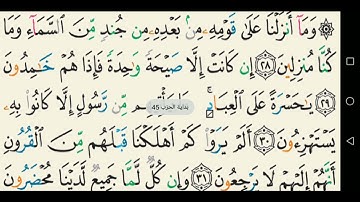 ۞ وَمَآ أَنزَلْنَا عَلَىٰ قَوْمِهِۦ مِنۢ بَعْدِهِۦ مِن جُندٍ مِّنَ ٱلسَّمَآءِ وَمَا
كُنَّا مُنزِلِينَ ٢٨ إِن كَانَتْ إِلَّا صَيْحَةً وَٰحِدَةً فَإِذَا هُمْ خَٰمِدُونَ
٢٩ يَٰحَسْرَةً عَلَى ٱلْعِبَادِ ۚ مَا يَأْتِيهِم مِّن رَّسُولٍ إِلَّا كَانُوا۟ بِهِۦ
بداية الحزب 45
يَسْتَهْزِءُونَ ٣٠ أَلَمْ يَرَوْا۟ كَمْ أَهْلَكْنَا قَبْلَهُم مِّنَ ٱلْقُرُونِ
أَنَّهُمْ إِلَيْهِمْ لَا يَرْجِعُونَ ٣١ وَإِن كُلٌّ لَّمَّا جَمِيعٌ لَّدَيْنَا مُحْضَرُونَ